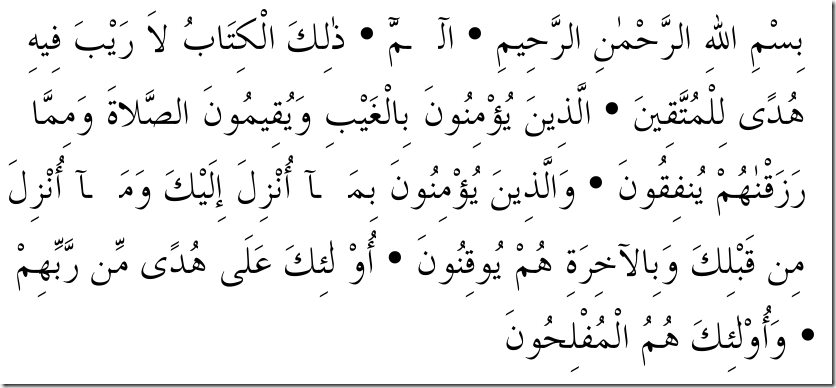 بِسْمِ اللهِ الرَّحْمٰنِ الرَّحِيمِ • الٓـمّٓ • ذٰلِكَ الْكِتَابُ لاَ رَيْبَ فِيهِ
هُدًى لِلْمُتَّقِينَ • الَّذِينَ يُؤْمِنُونَ بِالْغَيْبِ وَيُقِيمُونَ الصَّلاةَ وَمِمَّا
رَزَقْنٰهُمْ يُنفِقُونَ • وَالَّذِينَ يُؤْمِنُونَ بِمَـآ أُنْزِلَ إِلَيْكَ وَمَـآ أُنْزِلَ
مِن قَبْلِكَ وَبِالآخِرَةِ هُمْ يُوقِنُونَ • أُوْلٰئِكَ عَلَى هُدًى مِّن رَّبِّهِمْ
• وَأُوْلٰئِكَ هُمُ الْمُفْلِحُونَ